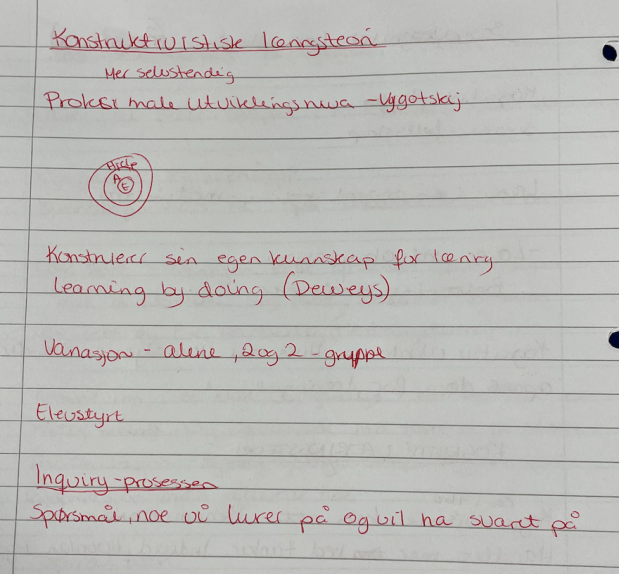 Konstruktivistisk læringsteori
Mer selvstendig
Proksimale utviklingsnivå - Vygotskij
Hjelp
A
E
Konstruerer sin egen kunnskap for læring
Learning by doing (Deweys)
Variasjon - alene, 2 og 2 - gruppe
Elevstyrt
Inquiry-prosessen
Spørsmål, noe vi lurer på og vil ha svaret på